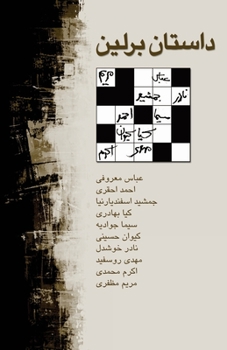 داستان برلین
عباس مریم
نادر جمشید
سیما احمد
کیا کیوان
مهدی اکرم
عباس معروفی
احمد احقری
جمشید اسفندیارنیا
کیا بهادری
سیما جوادیه
کیوان حسینی
نادر خوشدل
مهدی روسفید
اکرم محمدی
مریم مظفری